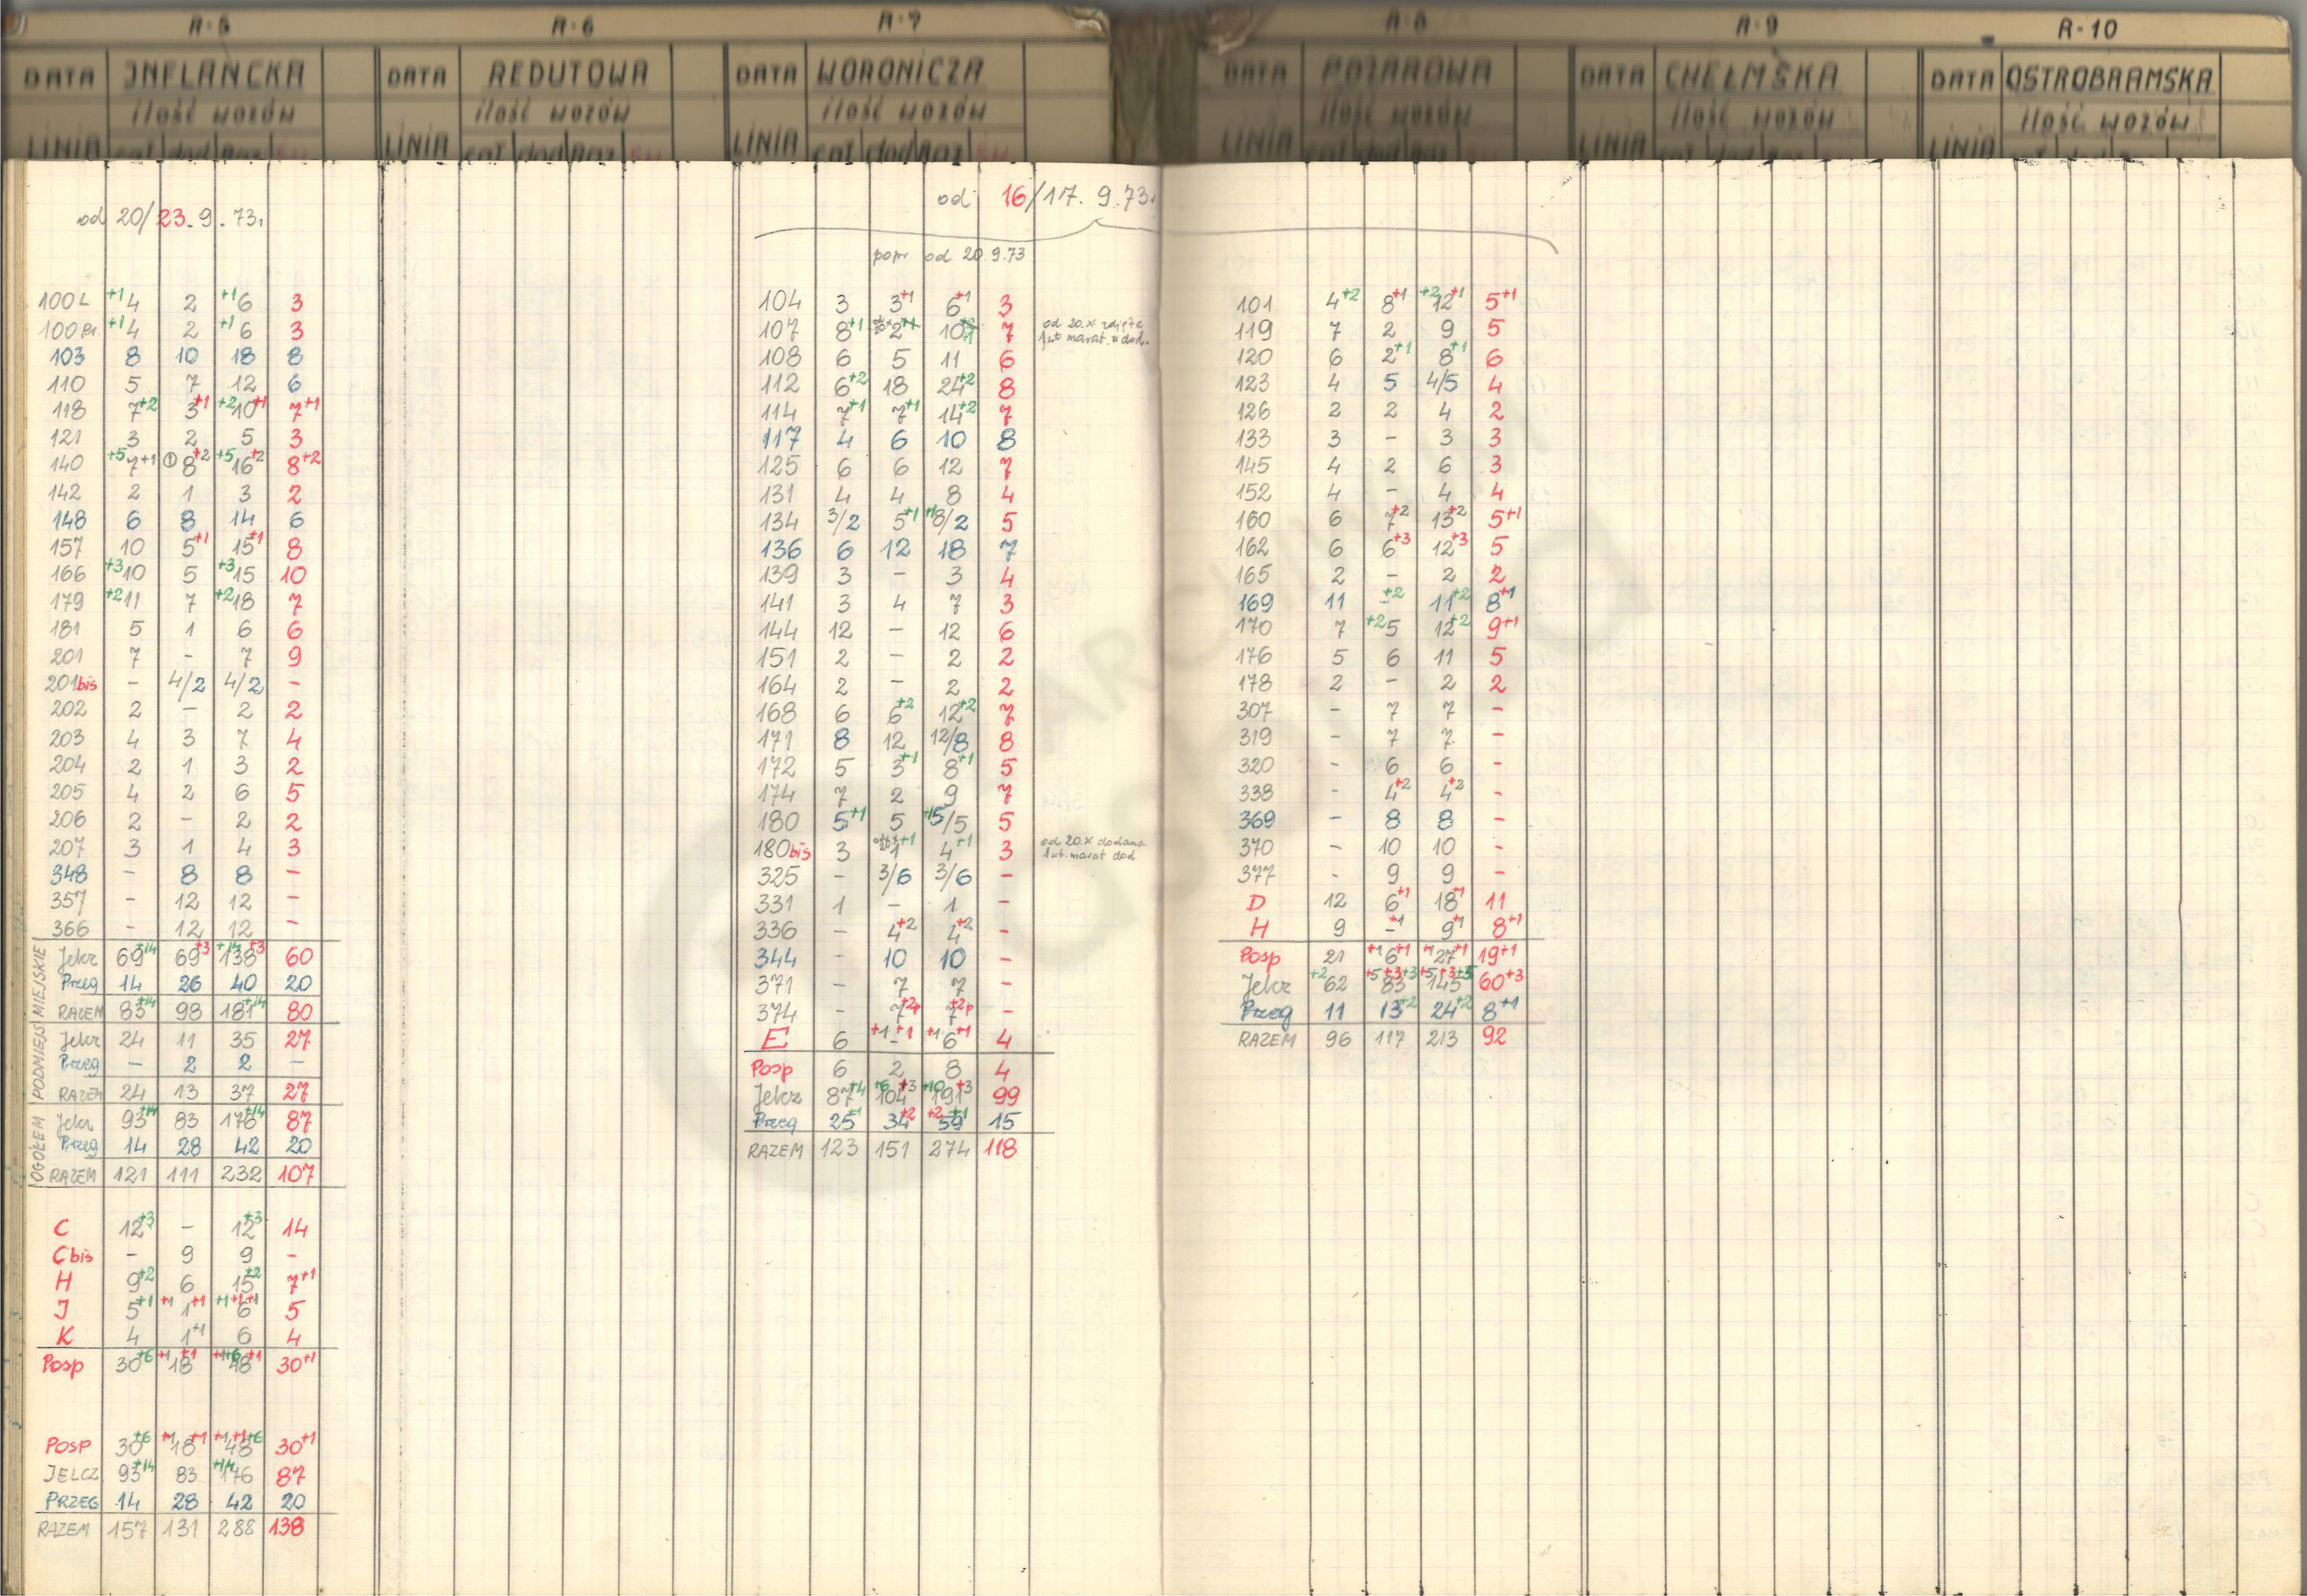 R-5 R-6 R-7 R-8 R-9 R-10
DATA INFLANCKA DATA REDUTOWA DATA WORONICZA DATA POŻAROWA DATA CHEŁMSKA DATA OSTROBRAMSKA
ilość wozów ilość wozów ilość wozów ilość wozów ilość wozów ilość wozów
LINIA cał dod Raz LINIA LINIA cał dod Raz LINIA LINIA LINIA
od 20/23.9.73r.
100L +1 4 2 +1 6 3
100Pr. +1 4 2 +1 6 3
103 8 10 18 8
110 5 7 12 6
118 7+2 3+1 +2 10+1 7+1
121 3 2 5 3
140 +5 7+1 ① 8+2 +5 16+2 8+2
142 2 1 3 2
148 6 8 14 6
157 10 5+1 15+1 8
166 +3 10 5 +3 15 10
179 +2 11 7 +2 18 7
181 5 1 6 6
201 7 - 7 9
201bis - 4/2 4/2 -
202 2 - 2 2
203 4 3 7 4
204 2 1 3 2
205 4 2 6 5
206 2 - 2 2
207 3 1 4 3
348 - 8 8 -
357 - 12 12 -
366 - 12 12 -
MIEJSKIE
Jelcz 69+14 69+3 +14 138+3 60
Przeg 14 26 40 20
RAZEM 83+14 98 181+14 80
PODMIEJS
Jelcz 24 11 35 27
Przeg - 2 2 -
RAZEM 24 13 37 27
OGÓŁEM
Jelcz 93+14 83 176+14 87
Przeg 14 28 42 20
RAZEM 121 111 232 107
C 12+3 - 12+3 14
C bis - 9 9 -
H 9+2 6 15+2 7+1
J 5+1 +1 1+1 +1+1+1 6 5
K 4 1+1 6 4
Posp 30+6 +1 18+1 +1+6 48+1 30+1
POSP 30+6 +1 18+1 +1+1+6 48 30+1
JELCZ 93+14 83 +14 176 87
PRZEG 14 28 42 20
RAZEM 157 131 288 138
od 16/17.9.73r.
popr. od 20.9.73
104 3 3+1 6+1 3
107 8+1 2+1 10 7 od 20.X zdjęta
1 wt marat. w dod.
108 6 5 11 6
112 6+2 18 24+2 8
114 7+1 7+1 14+2 7
117 4 6 10 8
125 6 6 12 7
131 4 4 8 4
134 3/2 5+1 +1 8/2 5
136 6 12 18 7
139 3 - 3 4
141 3 4 7 3
144 12 - 12 6
151 2 - 2 2
164 2 - 2 2
168 6 6+2 12+2 7
171 8 12 12/8 8
172 5 3+1 8+1 5
174 7 2 9 7
180 5+1 5 +1 5/5 5
180bis 3 1+1 4+1 3 od 20.X dodana
1 wt. marat dod
325 - 3/6 3/6 -
331 1 - 1 -
336 - 4+2 4+2 -
344 - 10 10 -
371 - 7 7 -
374 - 7+2p 7+2p -
E 6 +1 - +1 +1 6+1 4
Posp 6 2 8 4
Jelcz 87+4 +6 104+3 +10 191+3 99
Przeg 25+1 34+2 +2 59+1 15
RAZEM 123 151 274 118
101 4+2 8+1 +2 12+1 5+1
119 7 2 9 5
120 6 2+1 8+1 6
123 4 5 4/5 4
126 2 2 4 2
133 3 - 3 3
145 4 2 6 3
152 4 - 4 4
160 6 7+2 13+2 5+1
162 6 6+3 12+3 5
165 2 - 2 2
169 11 -+2 11+2 8+1
170 7 +2 5 12+2 9+1
176 5 6 11 5
178 2 - 2 2
307 - 7 7 -
319 - 7 7 -
320 - 6 6 -
338 - 4+2 4+2 -
369 - 8 8 -
370 - 10 10 -
377 - 9 9 -
D 12 6+1 18+1 11
H 9 -+1 9+1 8+1
Posp 21 +1 6+1 +1 27+1 19+1
Jelcz +2 62 +5+3+3 83 +5+3+5 145 60+3
Przeg 11 13+2 24+2 8+1
RAZEM 96 117 213 92